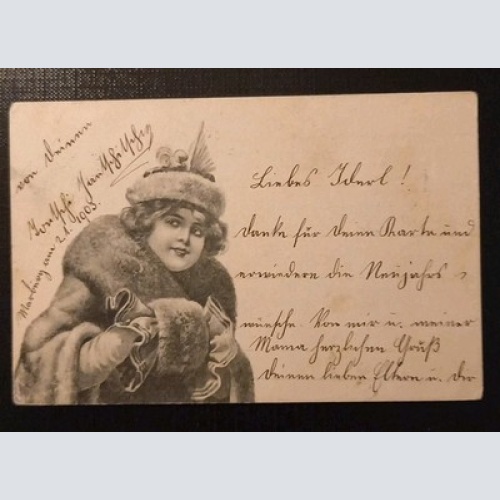 Liebes Iderl!
danke für Deine Karte und
erwiedere die Neujahrs-
wünsche. Von mir u. meiner
Mama herzlichen Gruß
Deinen lieben Eltern u. Dir
von Deinen
Marburg am 2.1.1903.